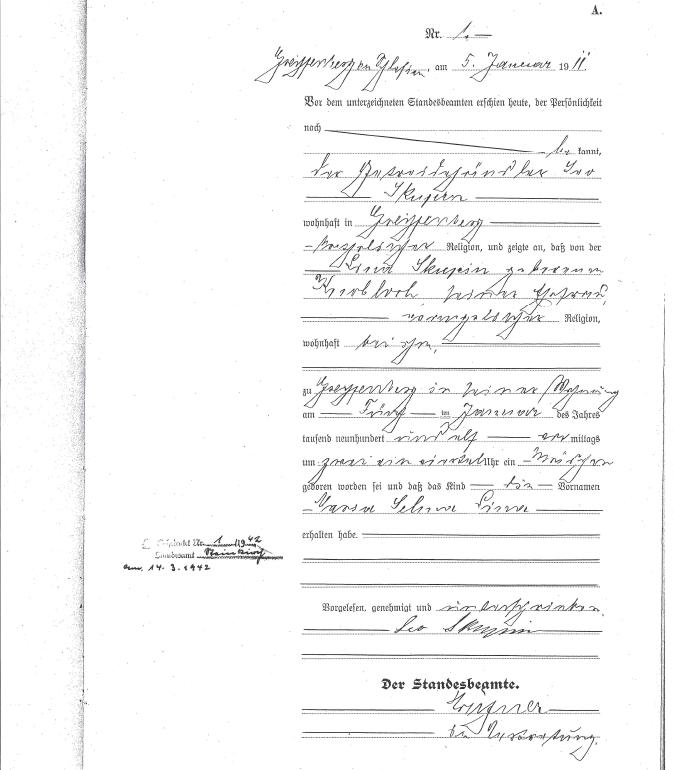 A.
Nr. 1.
Greiffenberg in Schlesien, am 5. Januar 1911.
Vor dem unterzeichneten Standesbeamten erschien heute, der Persönlichkeit
nach
be kannt,
der Getreidehändler Leo
Skupin
wohnhaft in Greiffenberg
katholischer Religion, und zeigte an, daß von der
Lina Skupin geborenen
Knobloch, seiner Ehefrau,
evangelischer Religion,
wohnhaft bei ihm,
zu Greiffenberg in seiner Wohnung
am Fünf ten Januar des Jahres
tausend neunhundert und elf vor mittags
um zwei ein viertel Uhr ein Mädchen
geboren worden sei und daß das Kind die Vornamen
Selma Lina
erhalten habe.
Nr. 1 1942
Standesamt
am 14.3.1942
Vorgelesen, genehmigt und unterschrieben.
Leo Skupin
Der Standesbeamte.
In Vertretung.